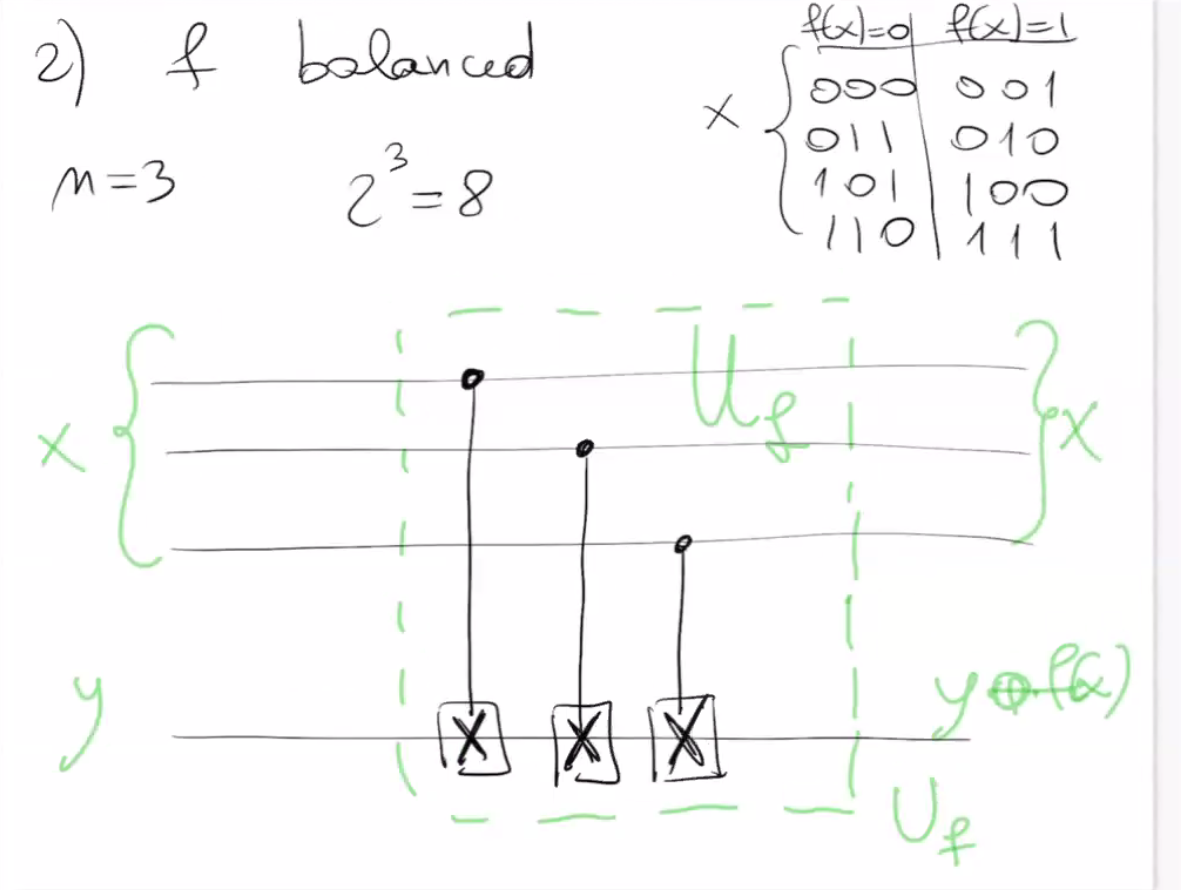 2) f balanced
n=3 2³=8
f(x)=0 f(x)=1
x
000 001
011 010
101 100
110 111
U_f
x x
y y⊕f(x)
X X X
U_f